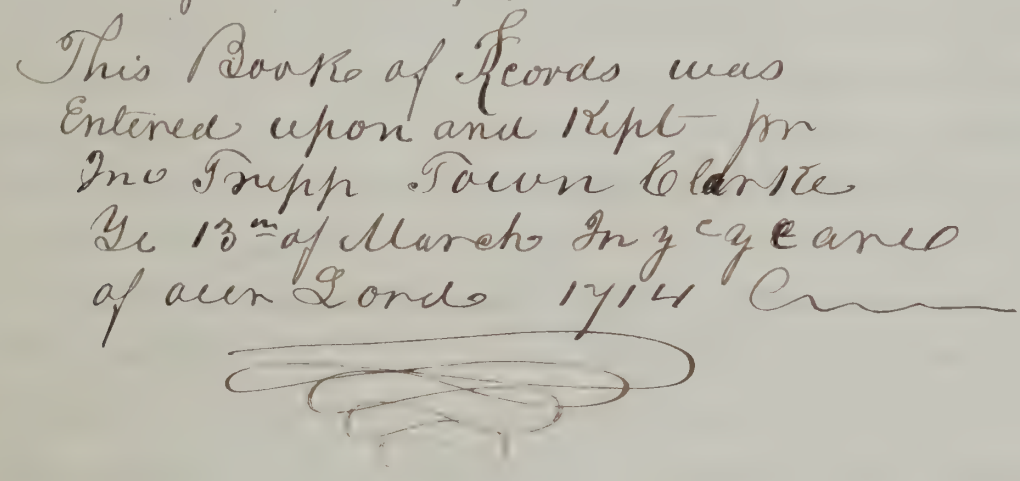 This Book of Records was
Entered upon and Kept pr
Jno Tripp Town Clarke
Ye 13m of March In ye yeare
of our Lord 1714